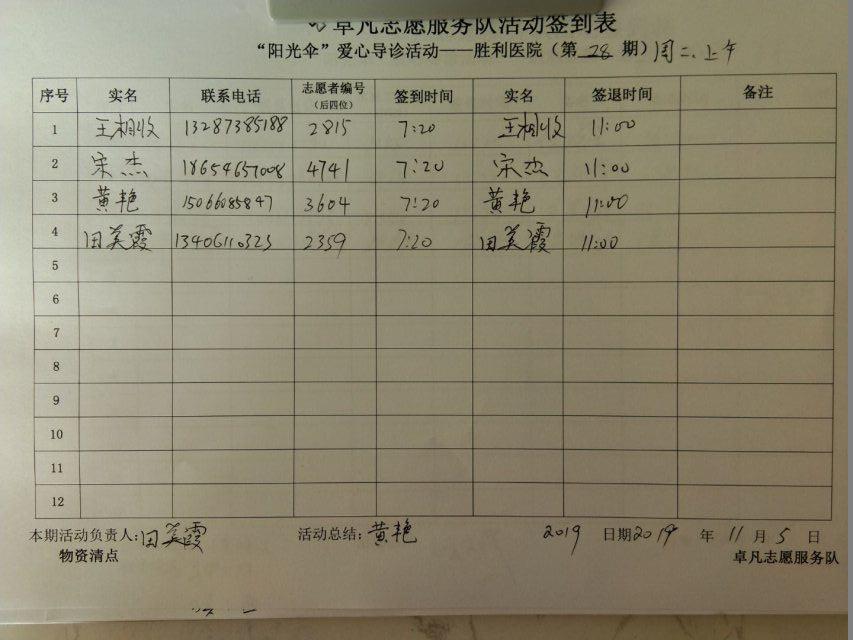 卓凡志愿服务队活动签到表
“阳光伞”爱心导诊活动——胜利医院（第 28 期）周二、上午
序号 实名 联系电话 志愿者编号（后四位） 签到时间 实名 签退时间 备注
1 王相收 13287385188 2815 7:20 王相收 11:00
2 宋杰 18654657008 4741 7:20 宋杰 11:00
3 黄艳 15066085847 3604 7:20 黄艳 11:00
4 田美霞 13406110323 2359 7:20 田美霞 11:00
5
6
7
8
9
10
11
12
本期活动负责人:田美霞 活动总结:黄艳 2019 日期2019 年 11 月 5 日
物资清点 卓凡志愿服务队